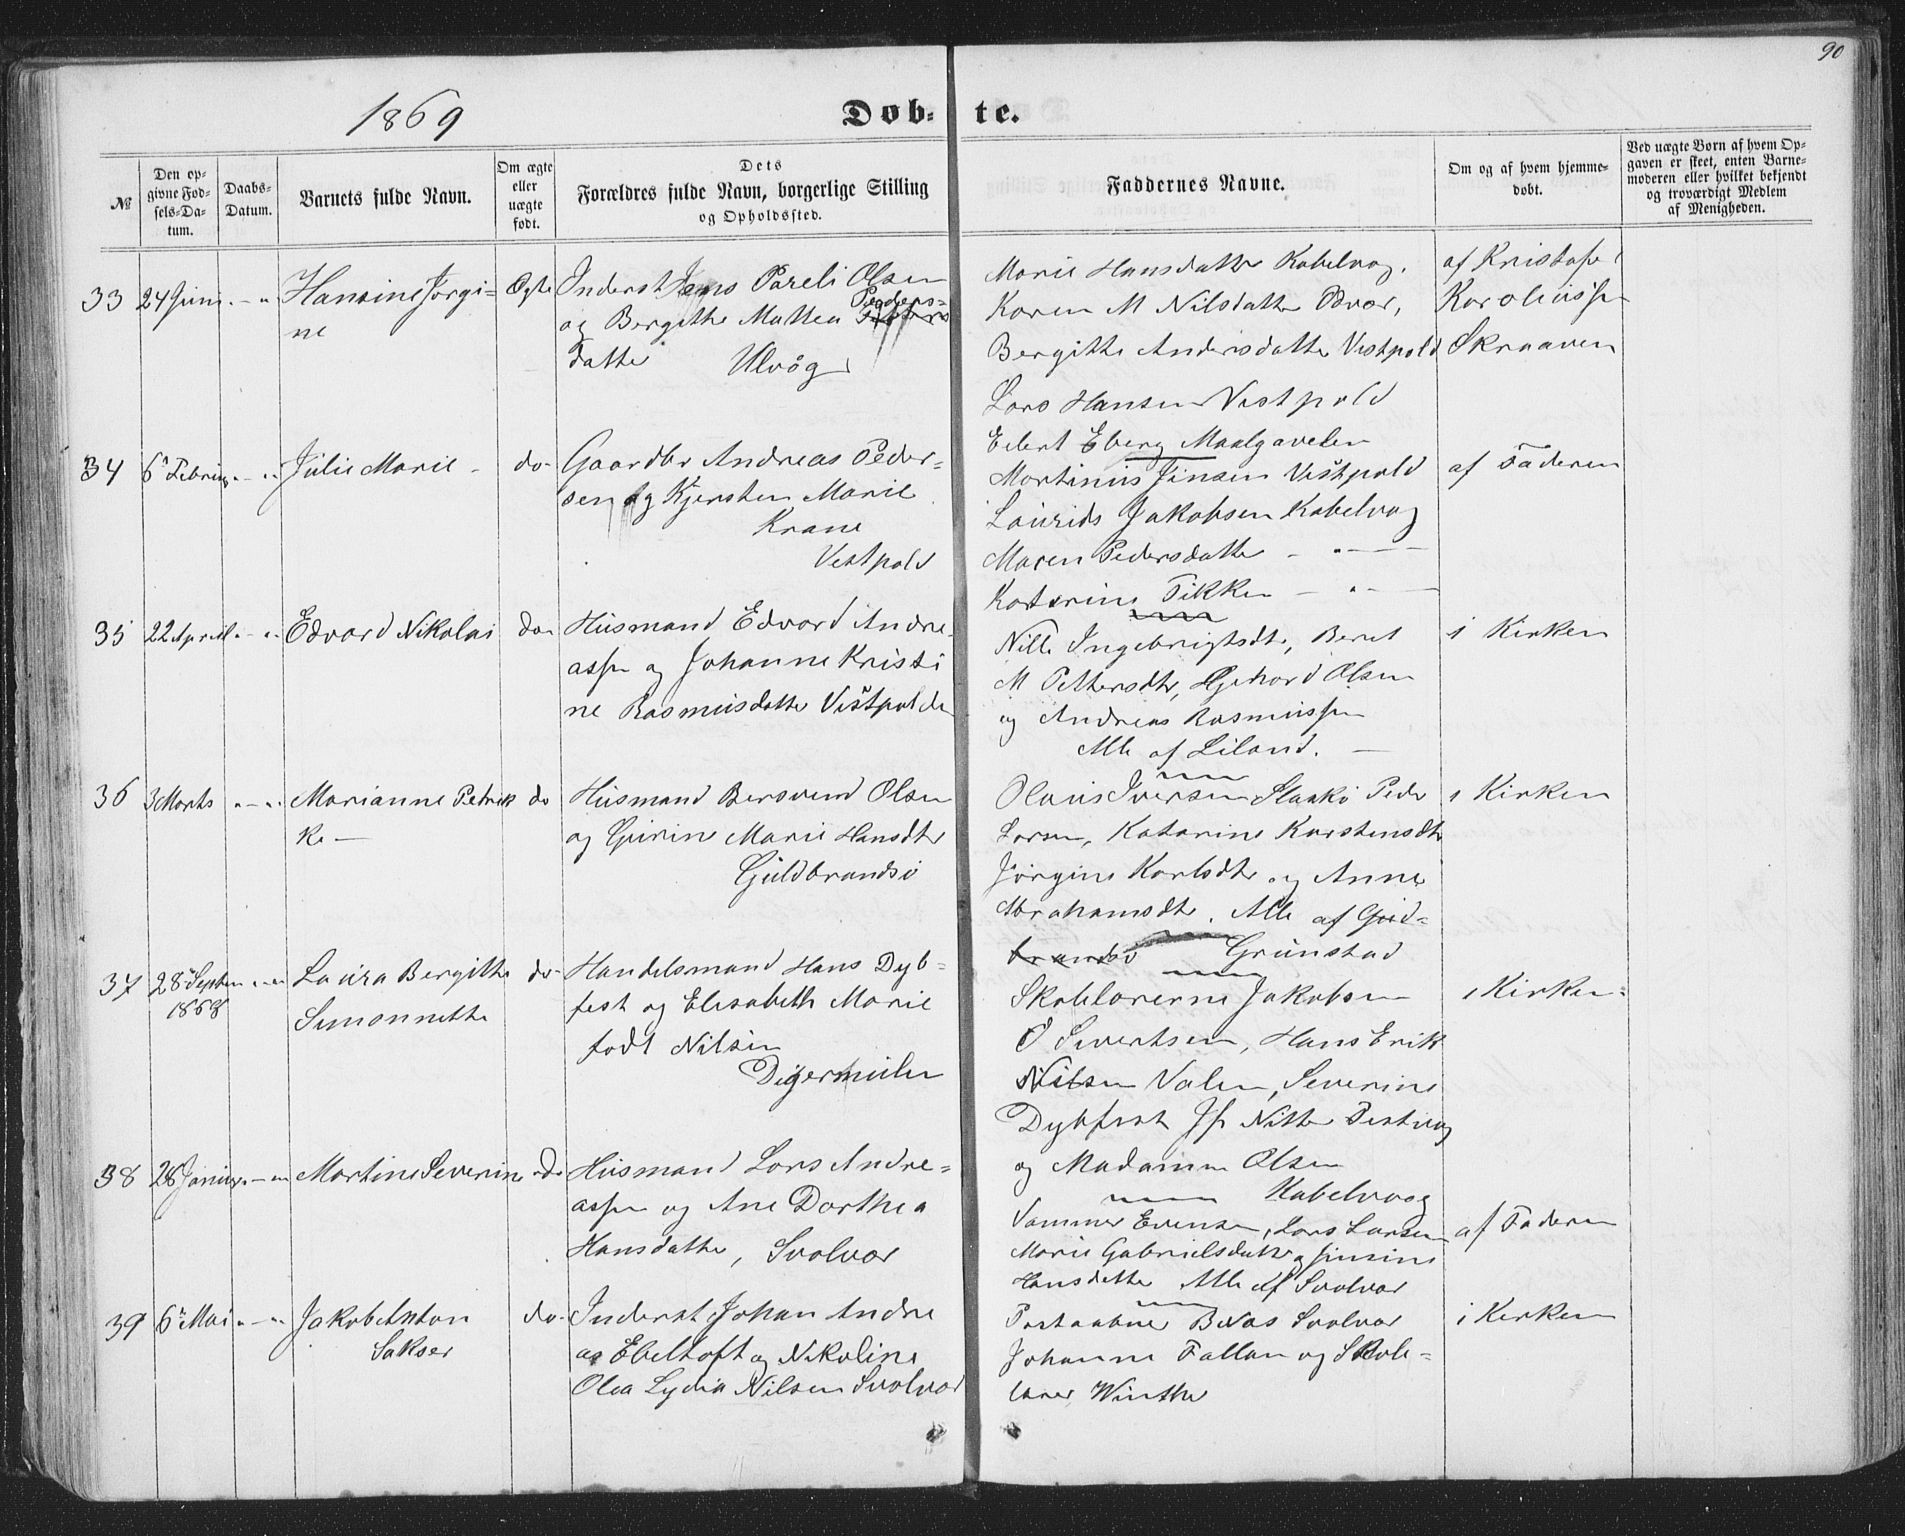 90
1869
Døb-te.
№
Den op-
givne Fød-
sels-Da-
tum.
Daabs-
Datum.
Barnets fulde Navn.
Om ægte
eller
uægte
født.
Dets
Forældres fulde Navn, borgerlige Stilling
og Opholdssted.
Faddernes Navne.
Om og af hvem hjemme-
døbt.
Ved uægte Børn af hvem Op-
gaven er skeet, enten Barne-
moderen eller hvilket bekjendt
og troværdigt Medlem
af Menigheden.
33 24 Juni Hansine Jørgi-
ne
Ægte
Inderst Jens Pareli Olsen
og Bergithe Mattea Peders-
datte Ulvög
Marie Hansdatter Kabelvog.
Karen M Nilsdatter Ødvær,
Bergitte Andersdatter Vestpold
Lars Hansen Vestpold
Edert Eberg Maalgavelen
af Kristofe
Karoliussen
Skraaven
34 6 Februar Julie Marie - do-
Gaardbr Andreas Peder-
sen og Kjersten Marie
Krane
Vestpold
Martinus Jensen Vestpold
Laurids Jakobsen Kabelvog
Maren Pedersdatter - " -
Katarine Fikken - " -
af Faderen
35 22 April Edvard Nikolai do-
Husmand Edvard Andre-
assen og Johanne Kristi
ne Rasmusdatter Vestpolden
Nille Ingebrigtsdt, Beret
M Pettersdtr, Gjerhard Olsen
og Andreas Rasmussen
Alle af Liland. -
i Kirken
36 3 Marts Marianne Petrik
ke -
do
Husmand Bersvend Olsen
og Gurine Marie Hansdtr
Guldbrandsö
Olaus Iversen Slaakö Peder
Larsen, Katarine Karstensdtr
Jörgine Karlsdtr og Anne
Abrahamsdtr. Alle af Guld-
brandsö Grunstad
i Kirken
37 28 Septem
1868
Laura Bergitte
Simonnette
do-
Handelsmand Hans Dyb-
fest og Elisabeth Marie
født Nilsen
Digermulen
Skolelærerne Jakobsen
O Sivertsen, Hans Erik
Nilsen Valen, Severine
Dybfest Jfr Nitter Festvag
og Madamme Olsen
Kabelvaag
i Kirken
38 28 Januar Martine Severine do
Husmand Lars Andre-
assen og Ane Dorthea
Hansdatter, Svolvær
Sammer Evensen, Lars Larsen
Marie Gabrielsdatter og Jensine
Hansdatter Alle af Svolvær
af Faderen
39 6 Mai Jakob Anton
Sakser
do-
Inderst Johan Andre
as Ebeltoft og Nikoline
Olea Lydia Nilsen Svolvær
Postaabner Svolvær
Johanne Fallan og Skole-
lærer Winther
i Kirken